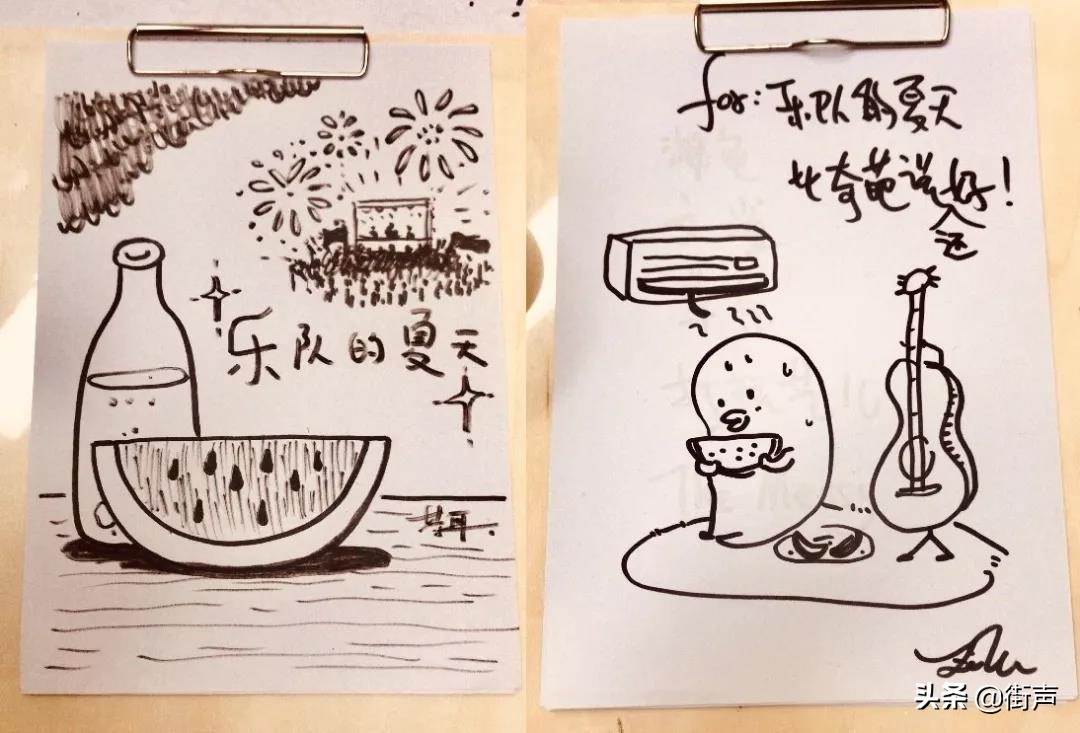 乐队的夏天
for:乐队的夏天
比奇葩说好!
还
头条 @街声